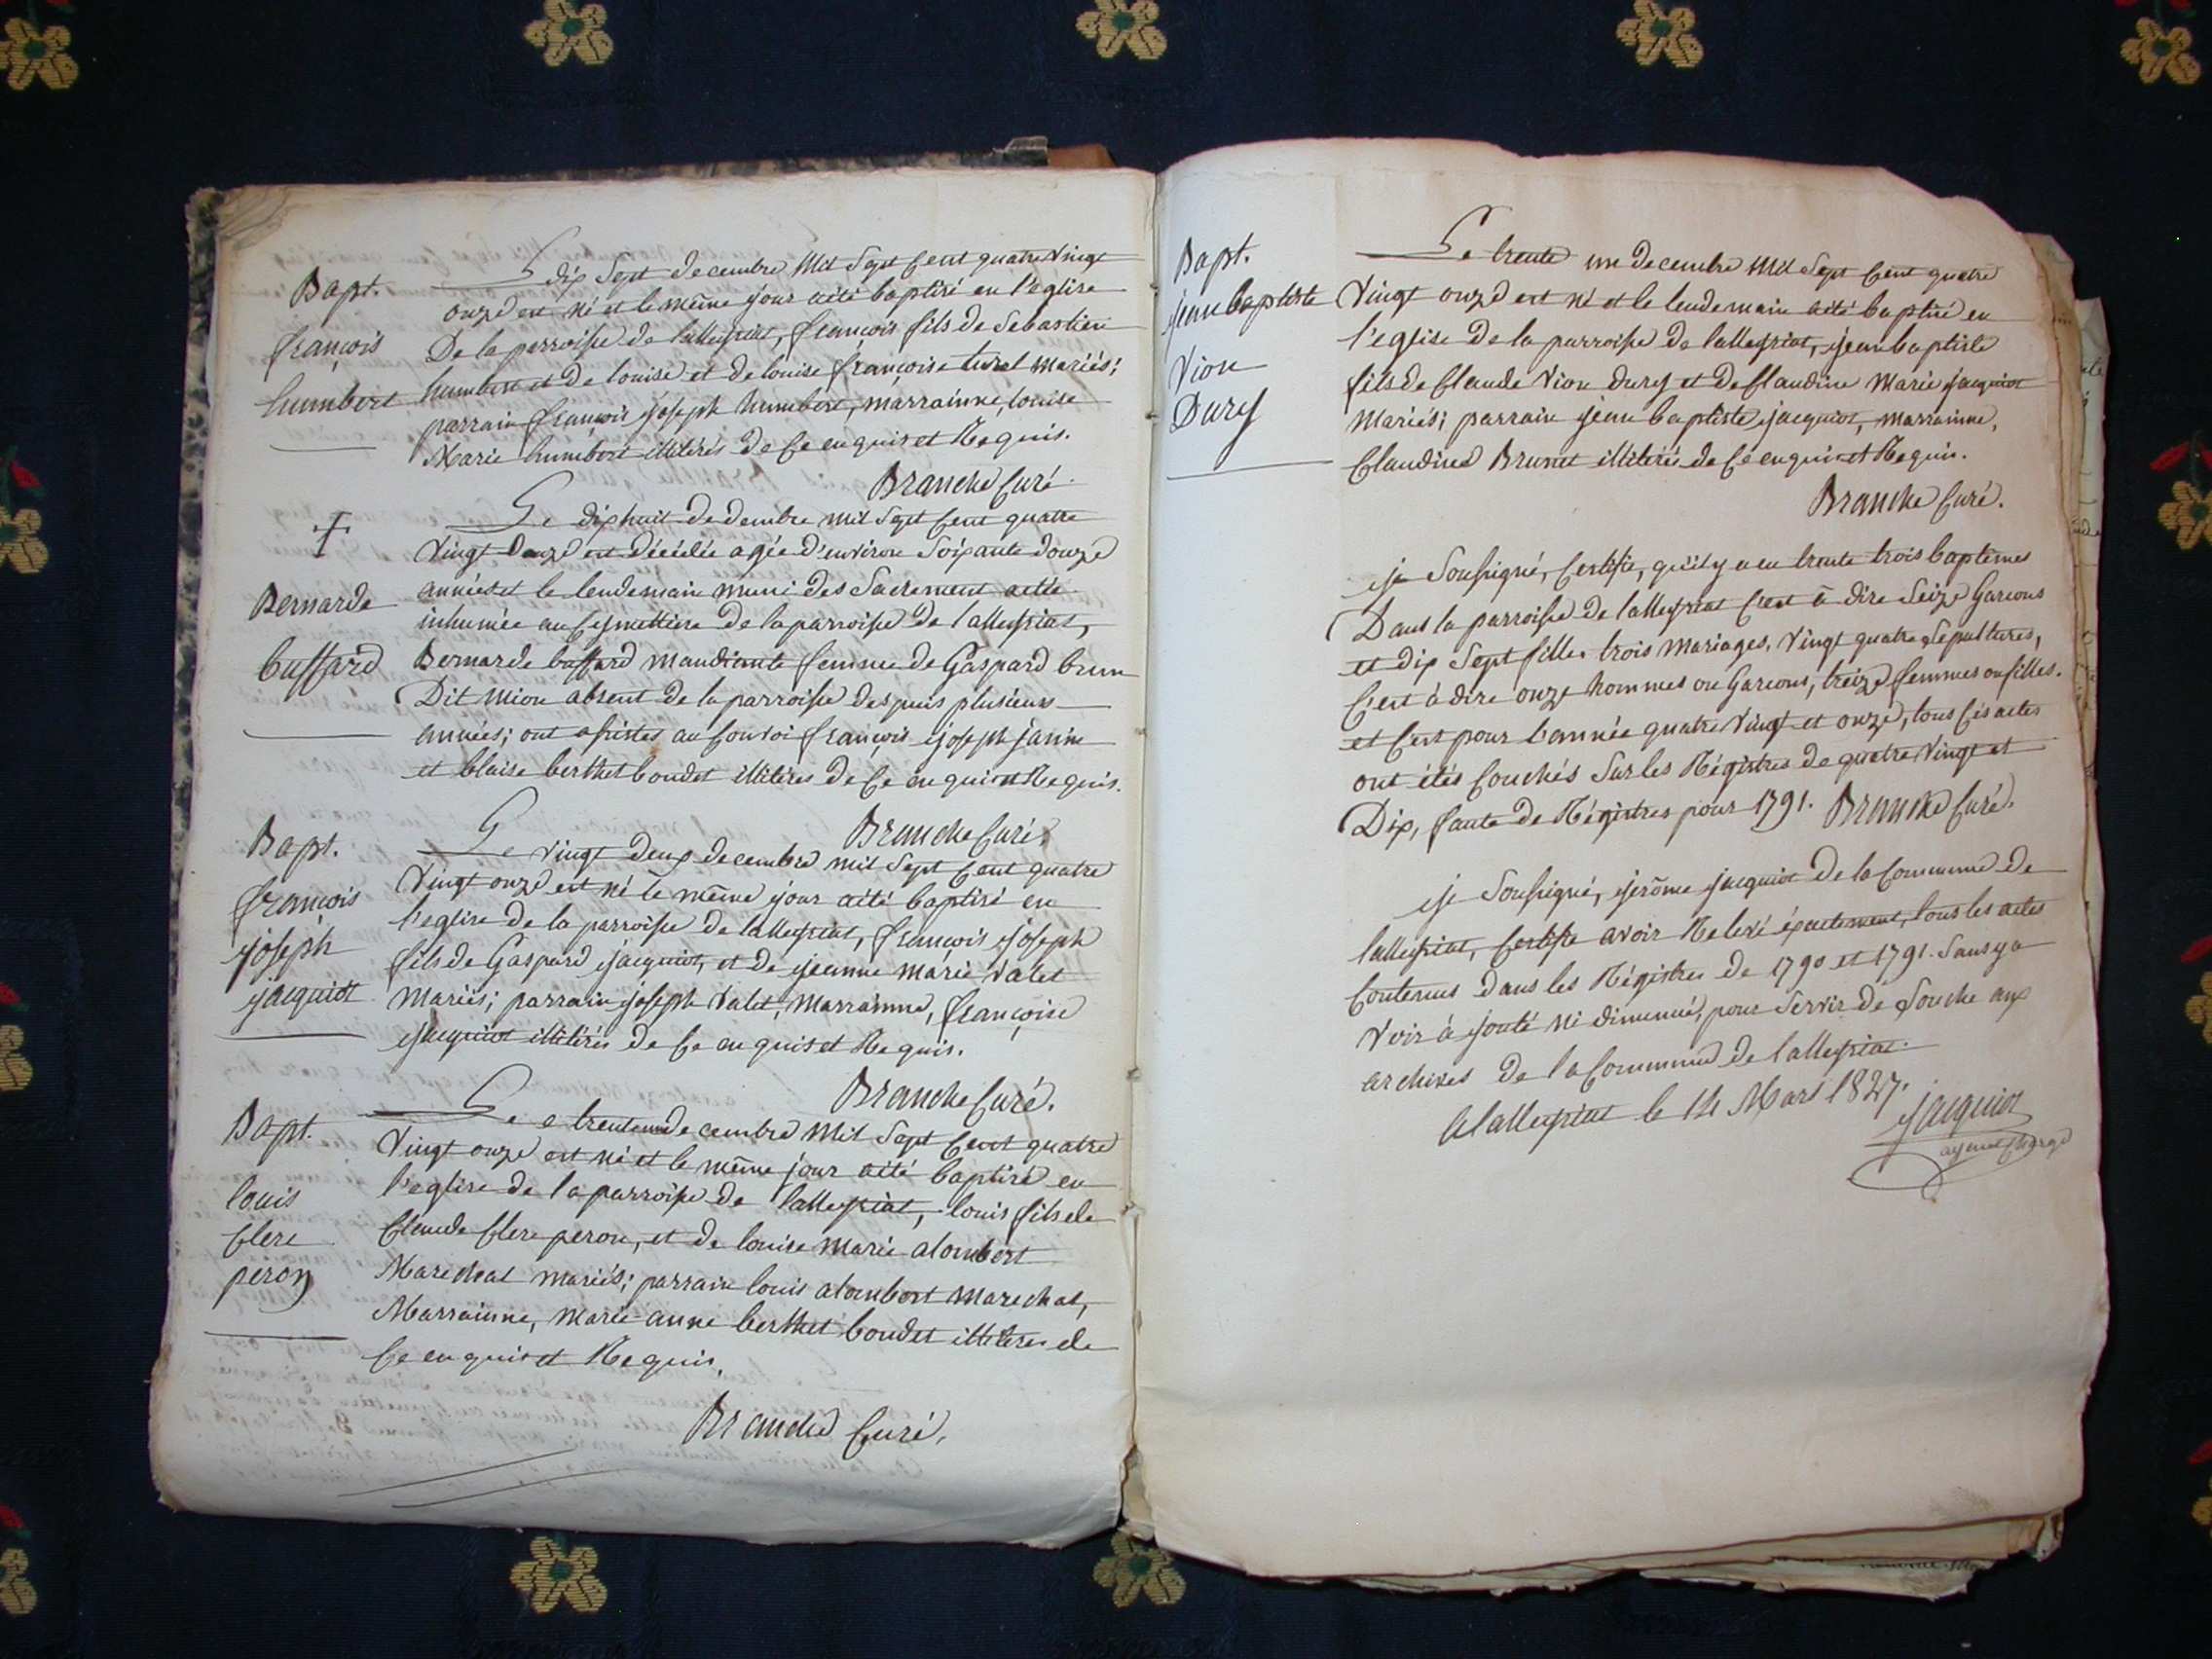 Bapt.
françois
humbert
Le dix Sept decembre Mil Sept Cent quatre Vingt
onze est né et le même jour a été baptisé en l'eglise
De la parroisse de lalleyriat, françois fils de Sebastien
humbert et de louise et de louise françoise turel mariés;
parrain françois joseph humbert, marrainne, louise
Marie humbert illitérés de Ce enquis et Requis.
Branche Curé.
Bernarde
buffard
Le dixhuit de dembre mil Sept Cent quatre
Vingt Donze est décédée agée d'environ Soixante douze
années et le lendemain muni des Sacrement a été
inhumée au Cymettiere de la parroisse de lalleyriat,
Bernarde buffard mandiante femme de Gaspard brun
Dit mion absent de la parroisse despuis plusieurs
années; ont assistés au Convoi françois joseph janin
et blaise berthet boudet illitérés de Ce enquis et Requis.
Branche Curé.
Bapt.
françois
joseph
jacquiot
Le Vingt deux decembre mil Sept Cent quatre
Vingt onze est né le même jour a été baptisé en
l'eglise de la parroisse de lalleyriat, françois joseph
fils de Gaspard jacquiot, et de jeanne marie Valet
mariés; parrain joseph Valet, Marrainne, françoise
jacquiot illitérés de Ce enquis et Requis.
Branche Curé.
Bapt.
louis
Clerc
peron
Le e trente un decembre Mil Sept Cent quatre
Vingt onze est né et le même jour a été baptisé en
l'eglise de la parroisse de lalleyriat, louis fils de
Claude Clerc peron, et de louise Marie alombert
Marechal mariés; parrain louis alombert marechal,
Marrainne, Marie anne berthet boudet illitérés de
Ce enquis et Requis.
Branche Curé.
Bapt.
jean baptiste
Vion
Dury
Le trente un decembre Mil Sept Cent quatre
Vingt onze est né et le lendemain a été baptisé en
l'eglise de la parroisse de lalleyriat, jean baptiste
fils de Claude Vion dury et de Claudine Marie jacquiot
Mariés; parrain jean baptiste jacquiot, marrainne,
Claudine Brunet illitérés de Ce enquis et Requis.
Branche Curé.
je Soussigné, Certifie, qu'il y a eu trente trois baptêmes
Dans la parroisse de lalleyriat C'est à dire Seize Garçons
et dix Sept filles trois Mariages, Vingt quatre Sepultures,
C'est à dire onze hommes ou Garçons, treize femmes ou filles.
et Cest pour l'année quatre Vingt et onze, tous Ces actes
ont étés Couchés Sur les Régistres de quatre Vingt et
Dix, faute de Régistres pour 1791. Branche Curé.
je Soussigné, jerôme jacquiot de la Commune de
lalleyriat, Certifie avoir Relevé éxactement, tous les actes
Contenus dans les Régistres de 1790 et 1791. Sans y a
Voir à jouté ni diminué, pour Servir de Souche aux
archives de la Commune de lalleyriat.
A lalleyriat le 14 Mars 1827.
jacquiot